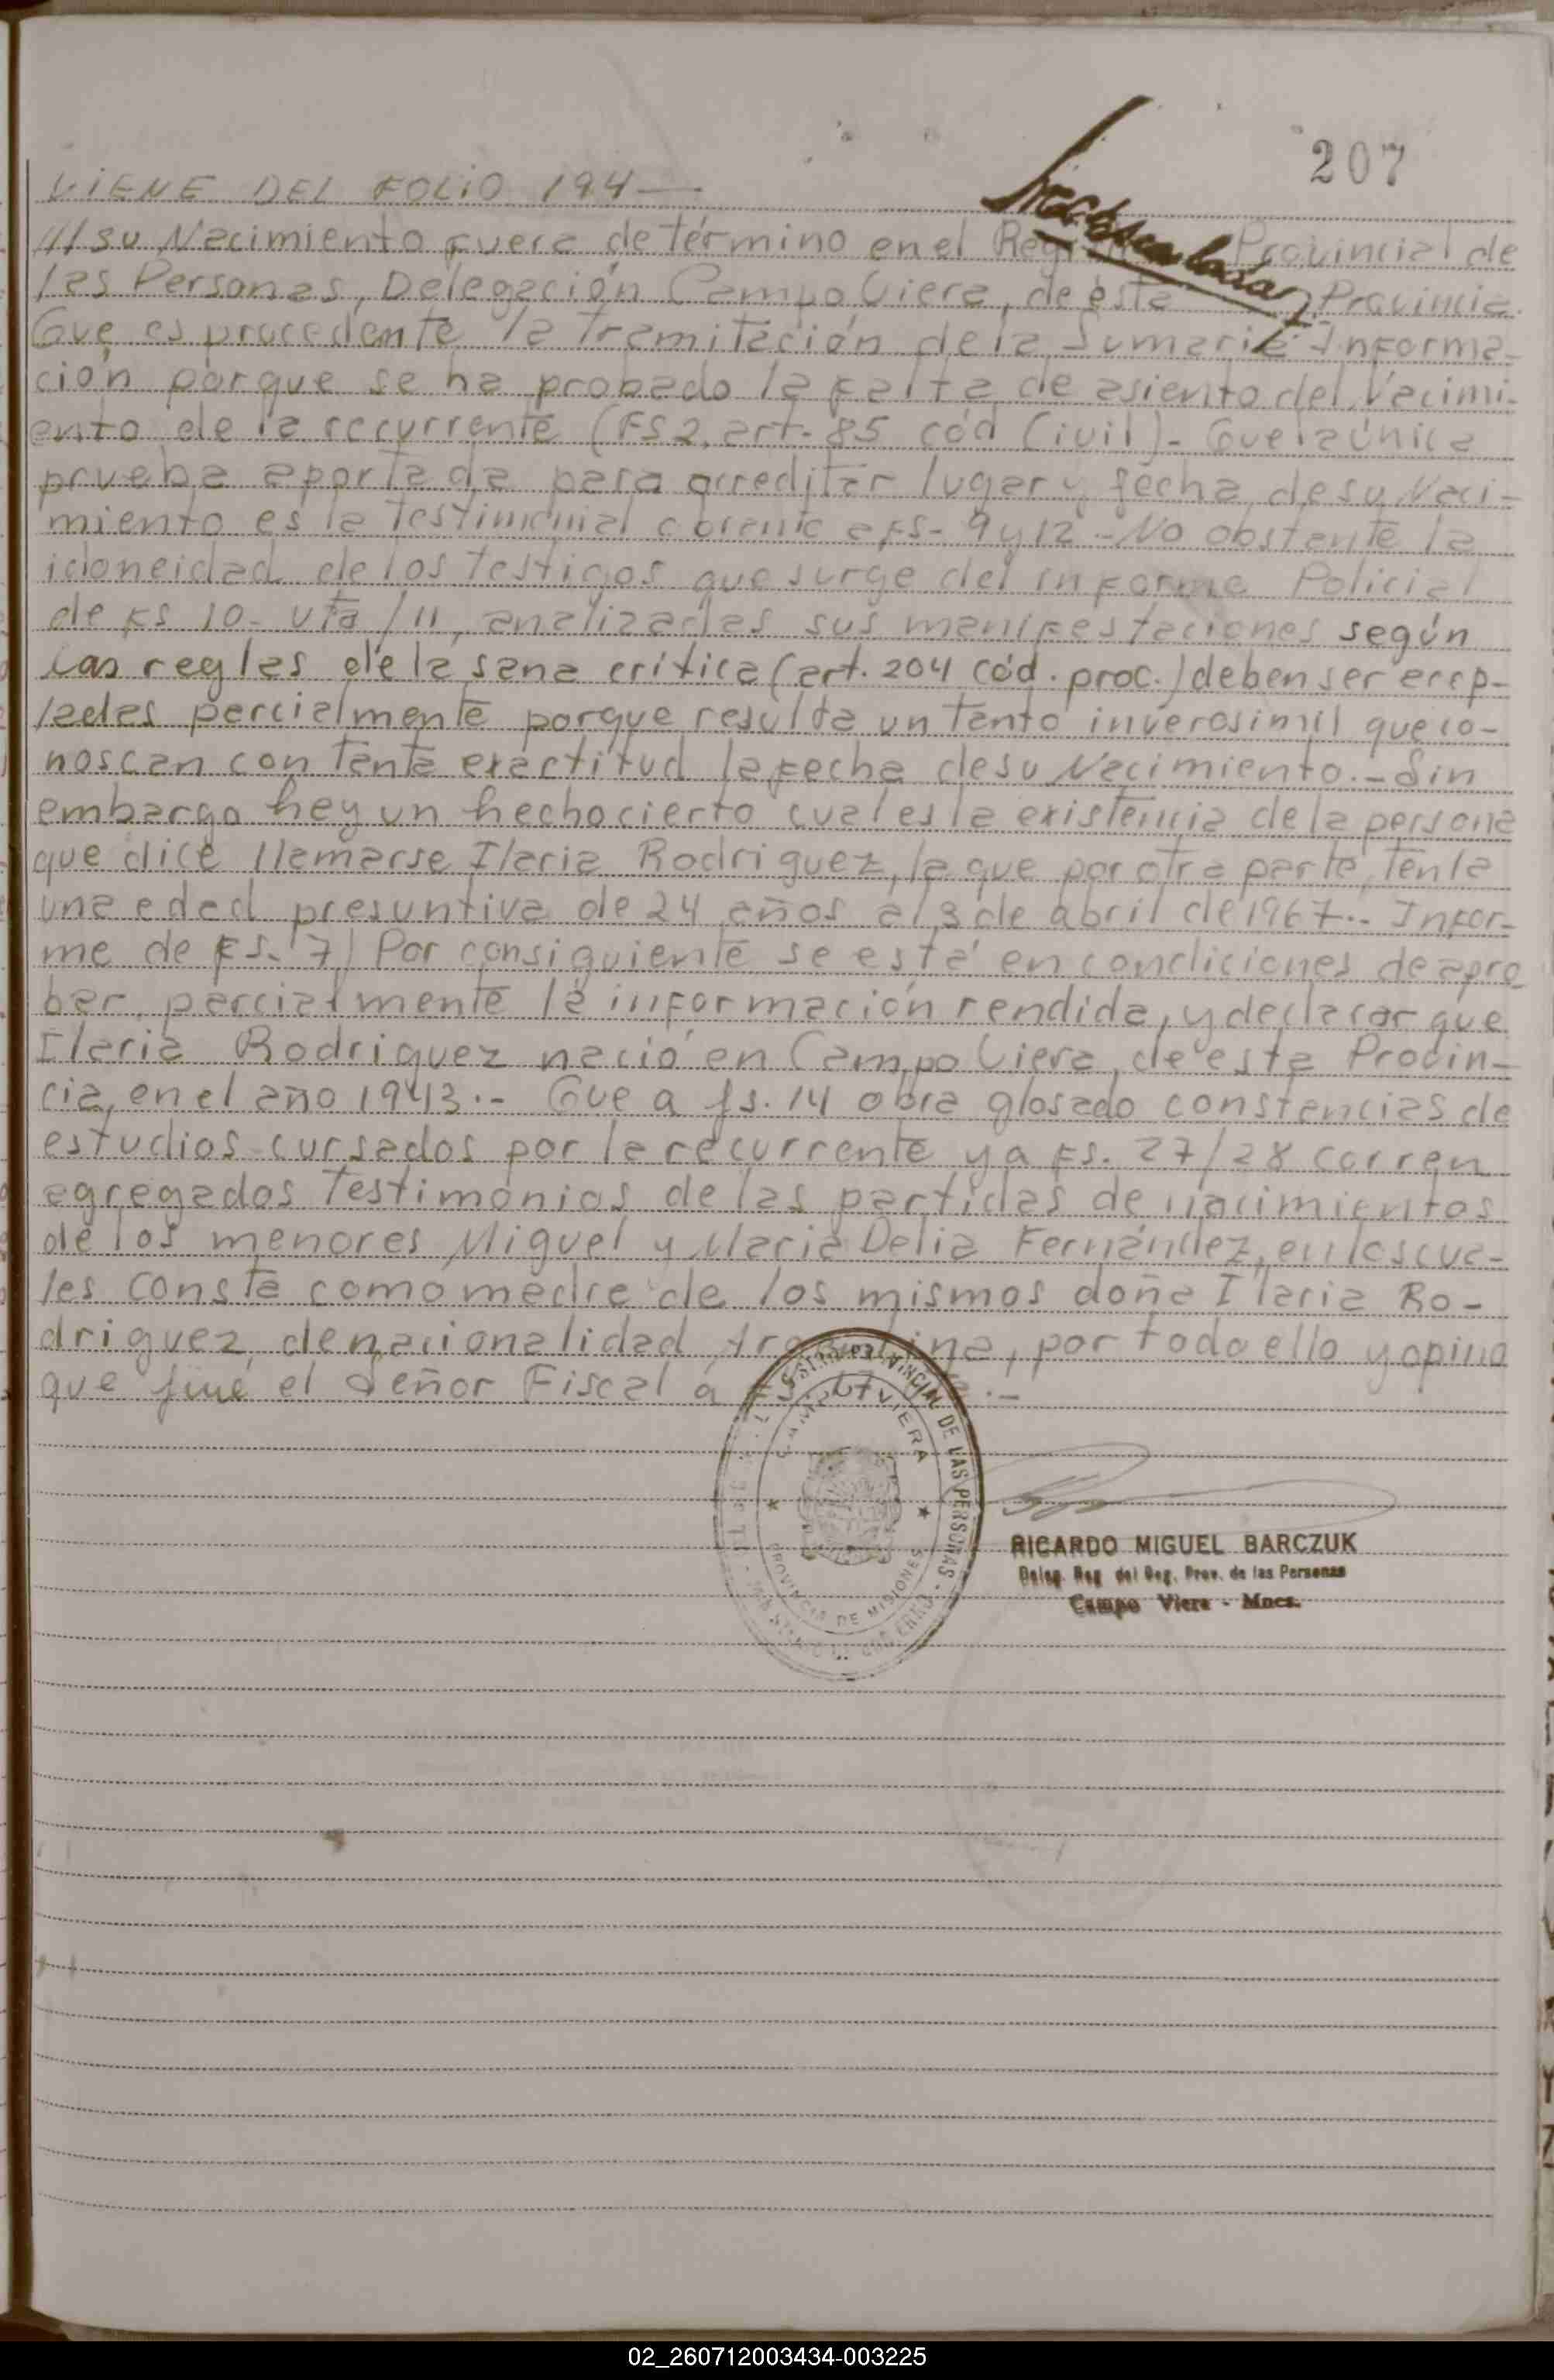 207
VIENE DEL FOLIO 194 —
/// su Nacimiento fuera de término en el Provincial de
las Personas, Delegación Campo Viera, de ésta Provincia.
Que es procedente la Tramitación de la Sumaria Informa-
ción porque se ha probado la falta de asiento del Nacimi-
ento de la recurrente (FS 2, art. 85 cód Civil)- Que la única
prueba aportada para acreditar lugar y fecha de su Naci-
miento es la Testimonial obrante a FS- 9 y 12 - No obstante la
idoneidad de los Testigos que surge del informe Policial
de FS 10- vta / 11, analizadas sus manifestaciones según
las reglas de la sana crítica (art. 204 cód. proc.) deben ser acep-
tadas parcialmente porque resulta un Tanto inverosimil que co-
noscan con Tanta exactitud la fecha de su Nacimiento.- Sin
embargo hay un hecho cierto cual es la existencia de la persona
que dice llamarse Ilaria Rodriguez, la que por otra parte, Tenía
una edad presuntiva de 24 años al 3 de abril de 1967.- Infor-
me de FS. 7) Por consiguiente se está en condiciones de apro
bar, parcialmente la información rendida, y declarar que
Ilaria Rodriguez nació en Campo Viera, de esta Provin-
cia, en el año 1943.- Que a fs. 14 obra glosado constancias de
estudios cursados por la recurrente y a FS. 27/28 corren
agregados Testimonios de las partidas de nacimientos
de los menores Miguel y Maria Delia Fernández, en las cua-
les consta como madre de los mismos doña Ilaria Ro-
driguez, de nacionalidad Argentina, por todo ello y opina
que fue el Señor Fiscal a
PROVINCIAL DE LAS PERSONAS
CAMPO VIERA
PROVINCIA DE MISIONES
RICARDO MIGUEL BARCZUK
Deleg. Reg. del Reg. Prov. de las Personas
Campo Viera - Mnes.
02_260712003434-003225